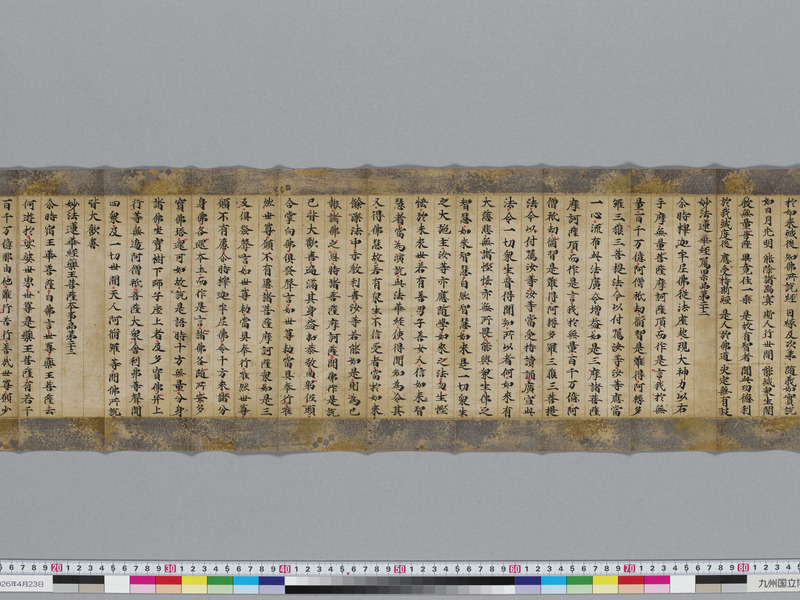 於如来滅後 知佛所説経 因縁及次第 随義如實説
如日月光明 能除諸幽冥 斯人行世間 能滅衆生闇
教無量菩薩 畢竟住一乗 是故有智者 聞此功徳利
於我滅度後 應受持斯経 是人於佛道 决定無有疑
妙法蓮華経嘱累品第廿二
尒時釋迦牟尼佛従法座起現大神力以右
手摩無量菩薩摩訶薩頂而作是言我於無
量百千万億阿僧祇劫修習是難得阿耨多
羅三藐三菩提法今以付嘱汝等汝等應當
一心流布此法廣令增益如是三摩諸菩薩
摩訶薩頂而作是言我於無量百千万億阿
僧祇劫修習是難得阿耨多羅三藐三菩提
法今以付嘱汝等汝等當受持讀誦廣宣此
法令一切衆生普得聞知所以者何如来有
大慈悲無諸慳悋亦無所畏能與衆生佛之
智慧如来智慧自然智慧如来是一切衆生
之大施主汝等亦應随學如来之法勿生慳
悋於未来世若有善男子善女人信如来智
慧者當為演説此法華経使得聞知為令其
人得佛慧故若有衆生不信受者當於如来
餘深法中示教利喜汝等若能如是則為已
報諸佛之恩時諸菩薩摩訶薩聞佛作是説
已皆大歡喜遍滿其身益加恭敬曲躬低頭
合掌向佛俱發聲言如世尊勑當具奉行唯
然世尊願不有慮諸菩薩摩訶薩衆如是三
反俱發聲言如世尊勑當具奉行唯然世尊
願不有慮尒時釋迦牟尼佛令十方来諸分
身佛各還本土而作是言諸佛各随所安多
寶佛塔還可如故説是語時十方無量分身
諸佛坐寶樹下師子座上者及多寶佛并上
行等無邊阿僧祇菩薩大衆舍利弗等聲聞
四衆及一切世間天人阿脩羅等聞佛所説
皆大歡喜
妙法蓮華経藥王菩薩本事品第廿三
尒時宿王華菩薩白佛言世尊藥王菩薩云
何遊於娑婆世界世尊是藥王菩薩有若干
百千万億那由他難行苦行善哉世尊願少
5 6 7 8 9 20 1 2 3 4 5 6 7 8 9 30 1 2 3 4 5 6 7 8 9 40 1 2 3 4 5 6 7 8 9 50 1 2 3 4 5 6 7 8 9 60 1 2 3 4 5 6 7 8 9 70 1 2 3 4 5 6 7 8 9 80 1 2 3 4
026年4月23日
九州国立博